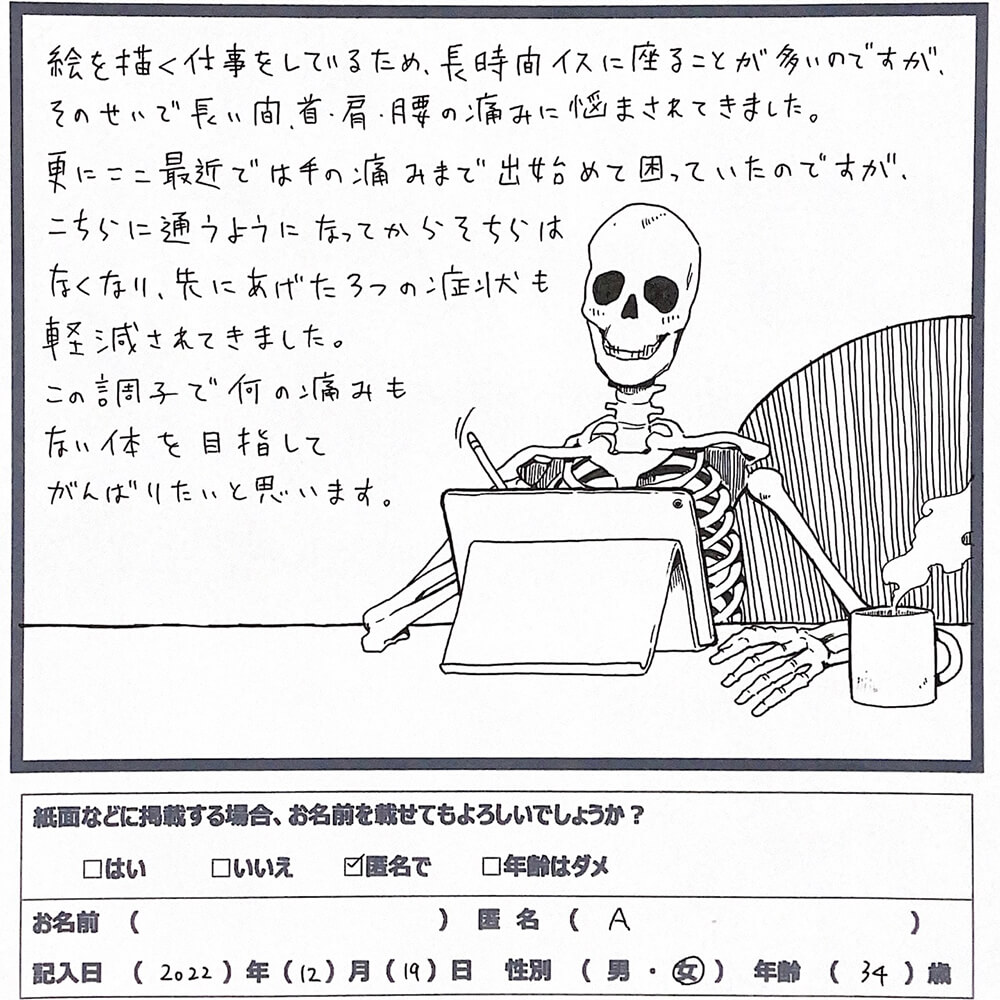 絵を描く仕事をしているため、長時間イスに座ることが多いのですが、
そのせいで長い間、首・肩・腰の痛みに悩まされてきました。
更にここ最近では手の痛みまで出始めて困っていたのですが、
こちらに通うようになってからそちらは
なくなり、先にあげた3つの症状も
軽減されてきました。
この調子で何の痛みも
ない体を目指して
がんばりたいと思います。
紙面などに掲載する場合、お名前を載せてもよろしいでしょうか？
□はい □いいえ ☑匿名で □年齢はダメ
お名前 （ ） 匿名 （ A ）
記入日 （2022）年（12）月（19）日 性別 （ 男・女 ） 年齢 （ 34 ）歳